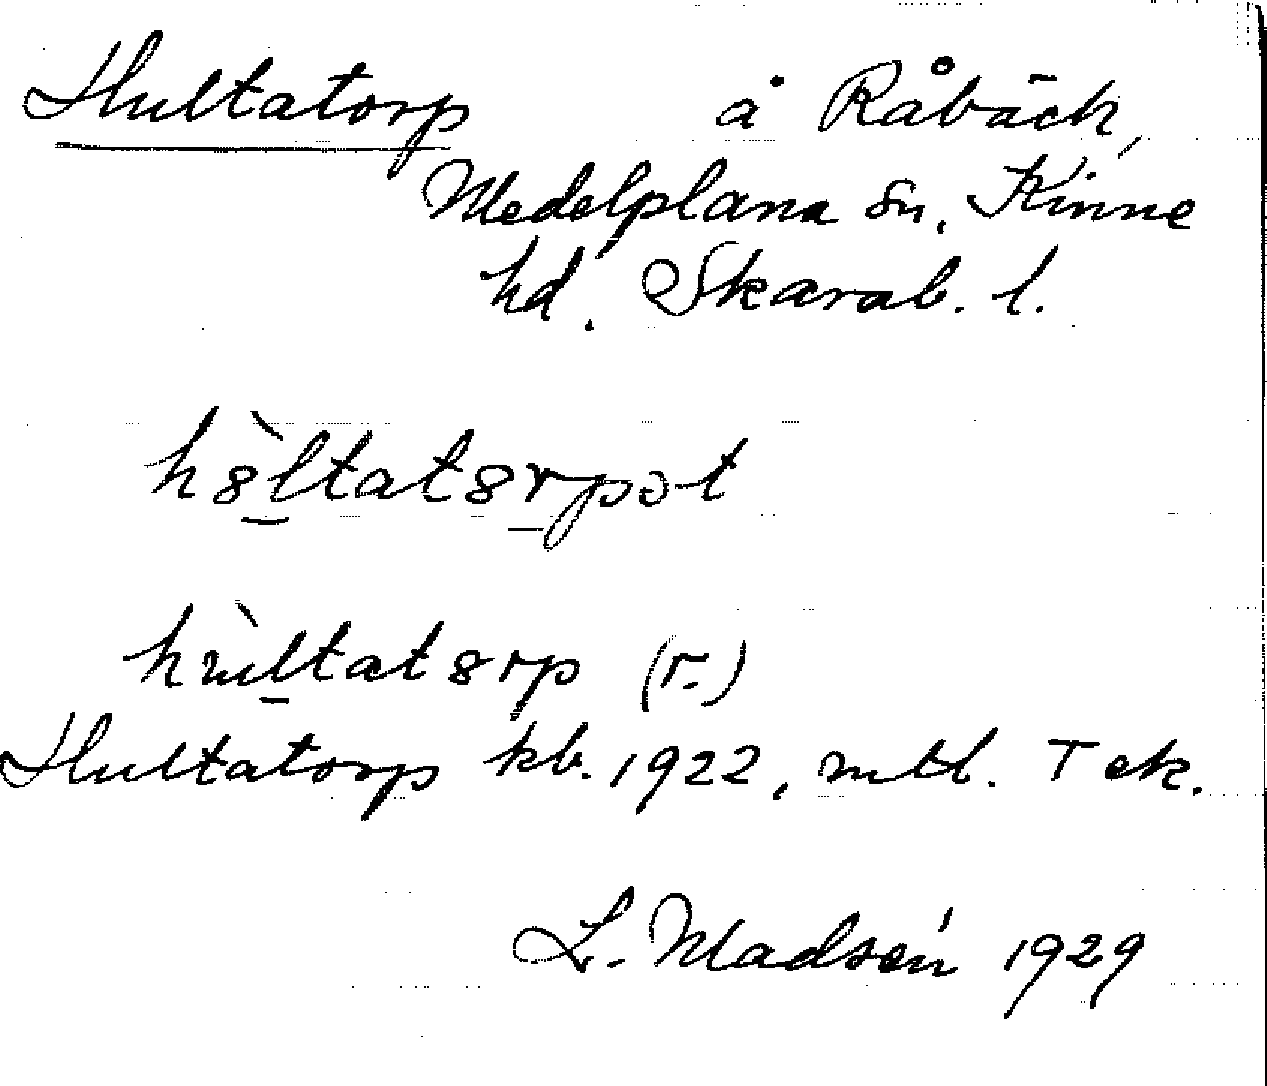 Hultatorp å Råbäck,
Medelplana sn, Kinne
hd. Skarab. l.
h8̀ltat8rpət
hùltat8rp (r.)
Hultatorp kb. 1922, mtl. T ek.
L. Madsén 1929